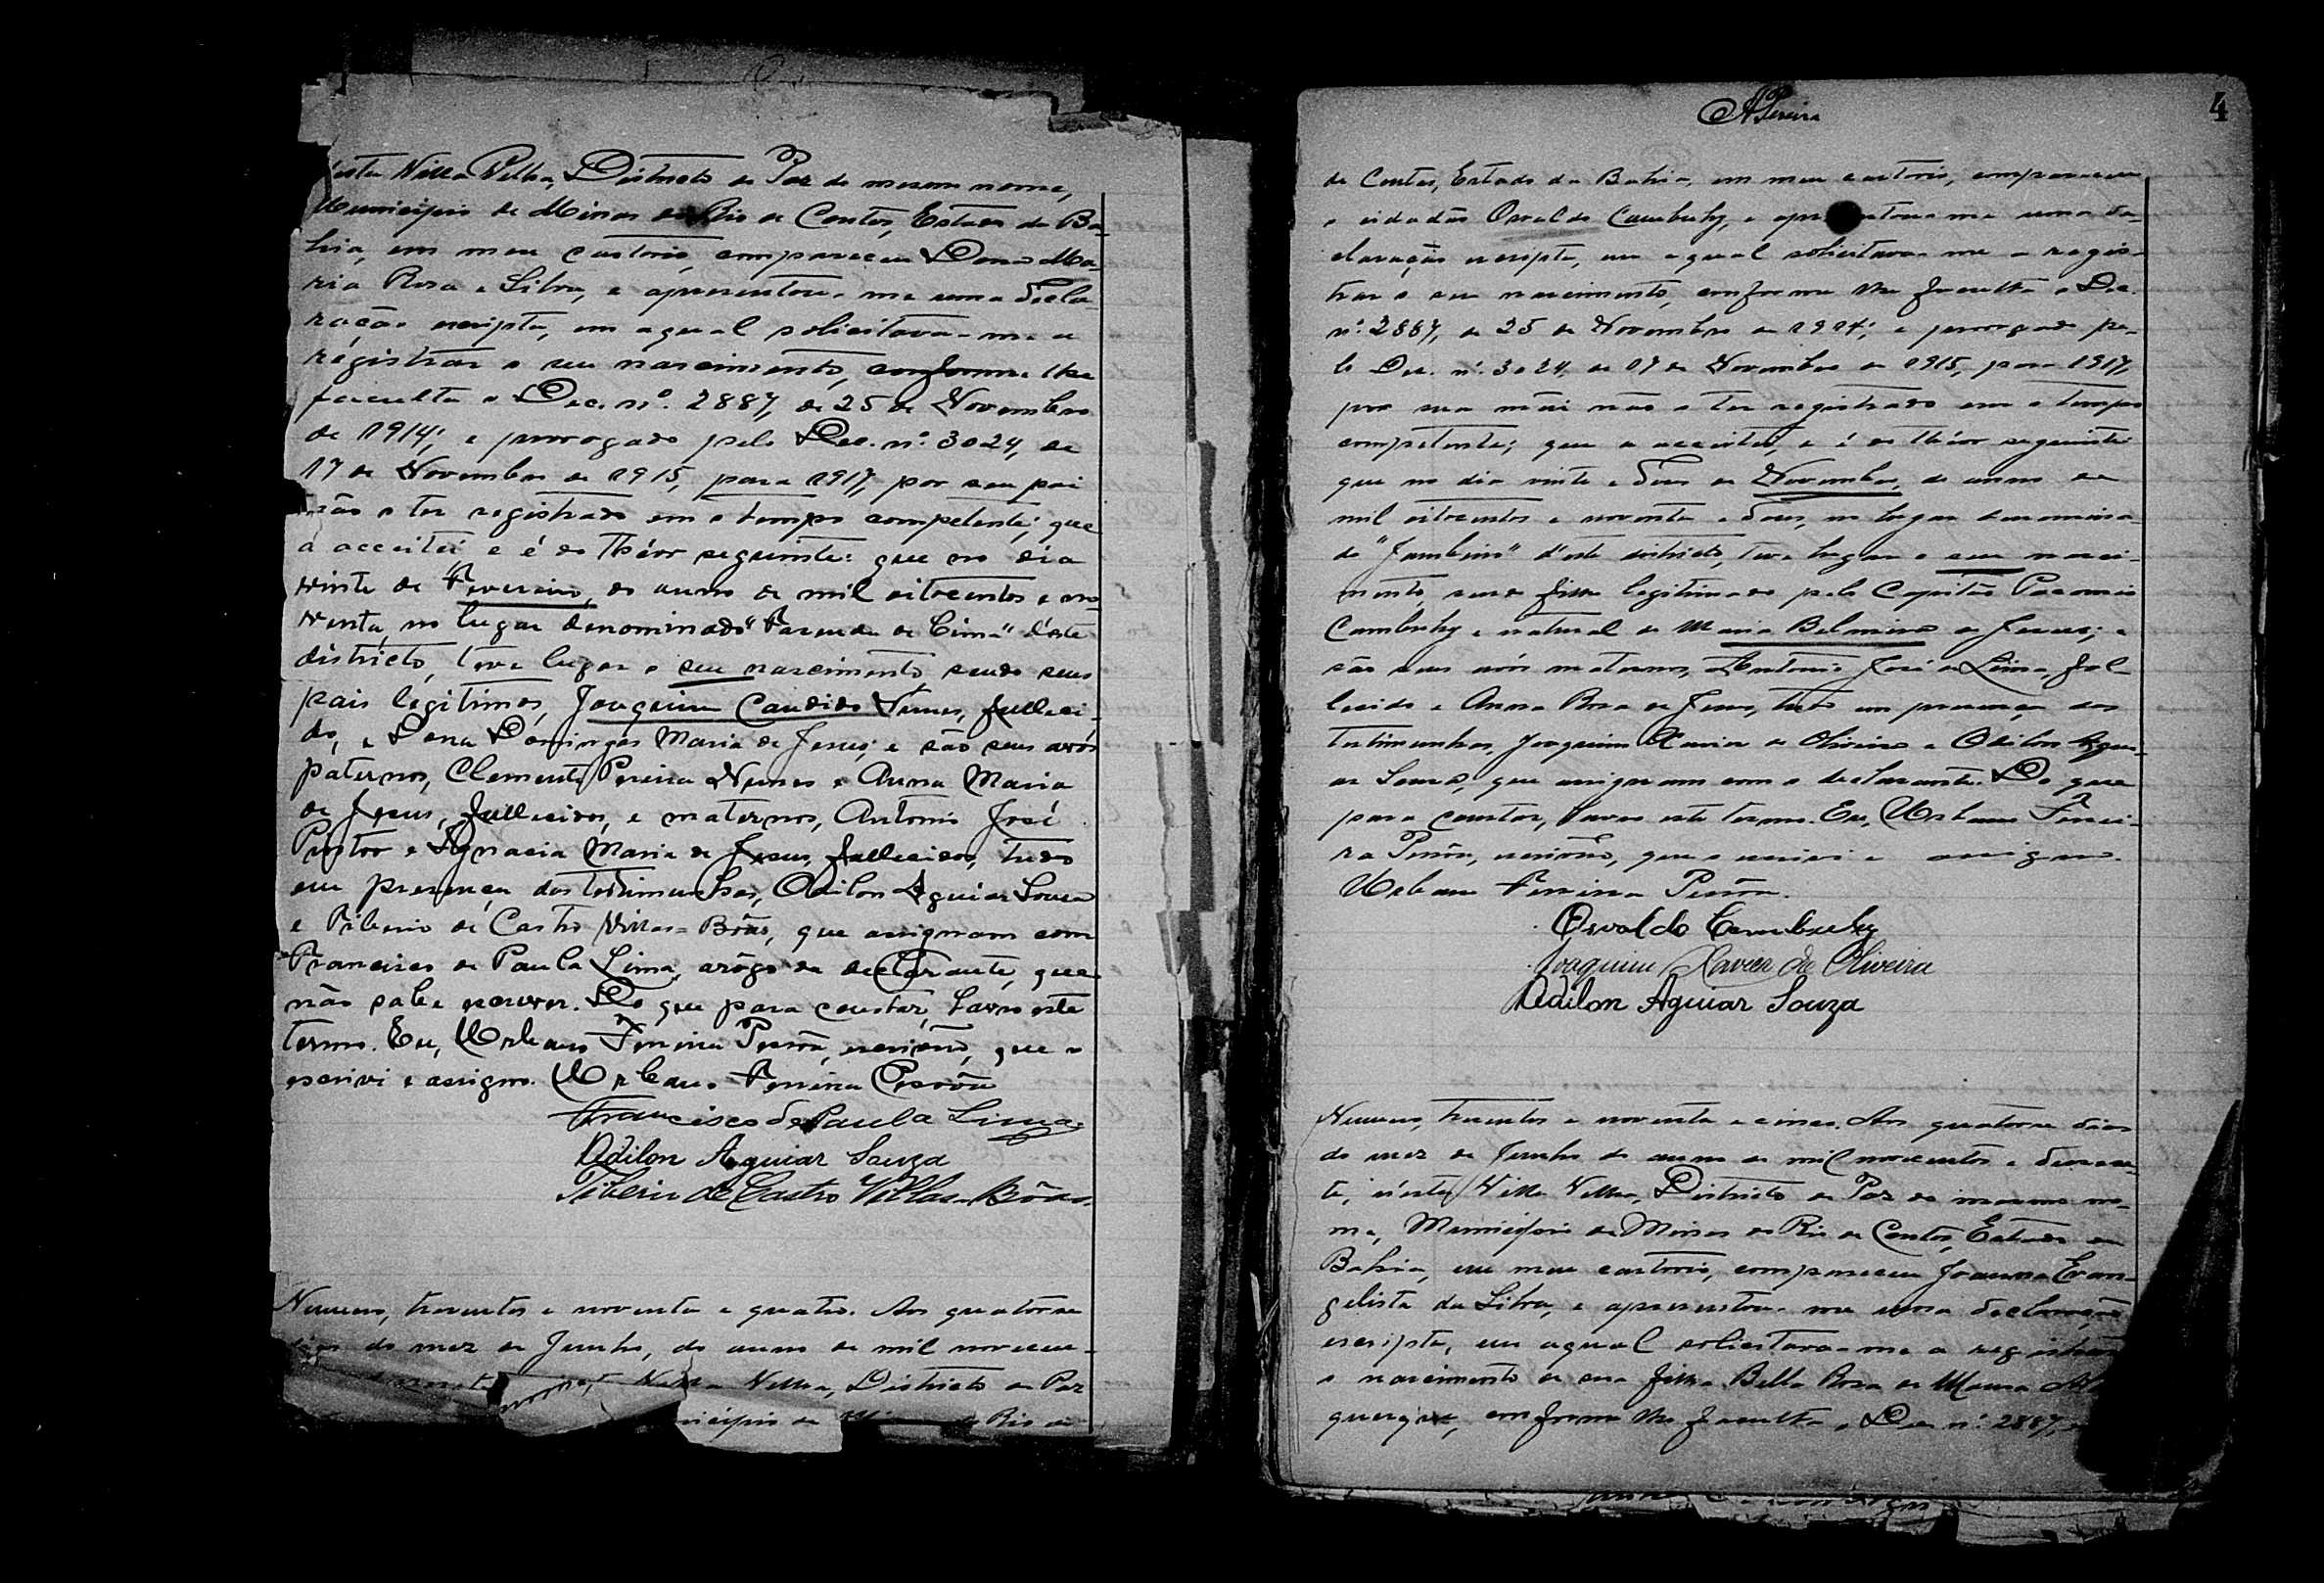 n'esta Villa Velha, Districto de Paz do mesmo nome,
Municipio de Minas do Rio de Contas, Estado da Ba-
hia, em meu cartorio, compareceu Dona Ma-
ria Rosa e Silva, e apresentou-me uma decla-
ração escripta, em a qual solicitava-me a
registrar o seu nascimento, conforme lhe
faculta o Dec. nº. 2887, de 25 de Novembro
de 1914; e prorogado pelo Dec. nº. 3024, de
17 de Novembro de 1915, para 1917, por seu pai
não o ter registrado em o tempo competente; que
a acceitei e é do theor seguinte: que no dia
vinte de Fevereiro, do anno de mil oitocentos e no-
venta, no lugar denominado "Fazenda de Cima" d'este
districto, teve lugar o seu nascimento, sendo seus
pais legitimos, Joaquim Candido Nunes, falleci-
do, e Dona Domingas Maria de Jesus; e são seus avós
paternos, Clemente Pereira Nunes e Anna Maria
de Jesus, fallecidos, e maternos, Antonio José
Pastor e Ignacia Maria de Jesus, fallecidos, tudo
em presença das testimunhas, Odilon Aguiar Souza
e Tiberio de Castro Villas-Bôas, que assignam com
Francisco de Paula Lima, arôgo da declarante, que
não sabe escrever. Do que para constar, lavro este
termo. Eu, Urbano Ferreira Pessôa, escrivão, que o
escrivi e assigno. Urbano Ferreira Pessôa
Francisco de Paula Lima
Odilon Aguiar Souza
Tiberio de Castro Villas-Bôas.
Numero, trezentos e noventa e quatro. Aos quatorze
dias do mez de Junho, do anno de mil novecen-
Villa Velha, Districto de Paz
nicipio de Minas do Rio de
APereira
4
de Contas, Estado da Bahia, em meu cartorio, compareceu
o cidadão Osvaldo Cambuhy, e apresentou-me uma de-
claração escripta, em a qual solicitava-me a regis-
trar o seu nascimento, conforme lhe faculta o Dec.
nº. 2887, de 25 de Novembro de 1914; e prorogado pe-
lo Dec. nº. 3024, de 17 de Novembro de 1915, para 1917,
por sua mãi não o ter registrado em o tempo
competente; que a acceitei, e é do theor seguinte:
que no dia vinte e dous de Novembro, do anno de
mil oitocentos e noventa e dous, no lugar denomina-
do "Jambeiro" d'este districto, teve lugar o seu nasci-
mento, sendo filho legitimado pelo Capitão
Cambuhy e natural de Maria Belmira de Jesus; e
são seus avós maternos, Antonio José de Lima, fal-
lecido e Anna Rosa de Jesus, tudo em presença das
testimunhas, Joaquim Xavier de Oliveira e Odilon Agui-
ar Souza, que assignam com o declarante. Do que
para constar, lavro este termo. Eu, Urbano Ferrei-
ra Pessôa, escrivão, que o escrivi e assigno.
Urbano Ferreira Pessôa.
Osvaldo Cambuhy
Joaquim Xavier de Oliveira
Odilon Aguiar Souza
Numero, trezentos e noventa e cinco. Aos quatorze dias
do mez de Junho do anno de mil novecentos e dezese-
te, n'esta Villa Velha, Districto de Paz do mesmo no-
me, Municipio de Minas do Rio de Contas, Estado da
Bahia, em meu cartorio, compareceu Joanna Evan-
gelista da Silva, e apresentou-me uma declaração
escripta, em a qual solicitava-me a registrar
o nascimento de sua filha Bella Rosa de Moura Al
querque, conforme lhe faculta o Dec. nº. 2887, de